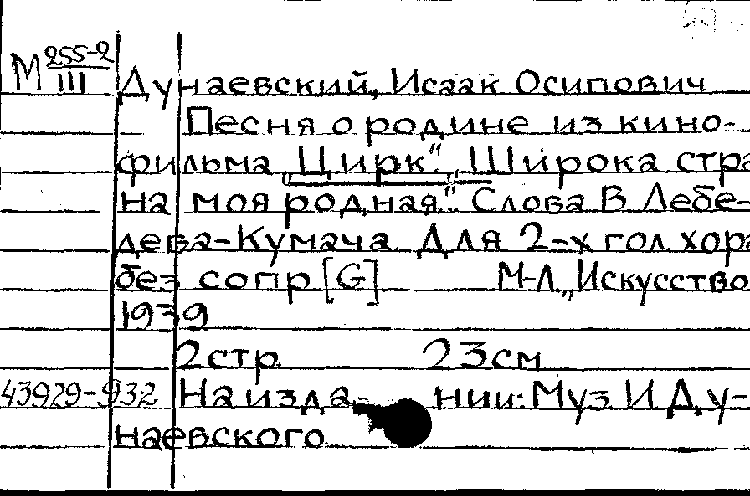 М 255-2
III
Дунаевский, Исаак Осипович
Песня о родине из кино-
фильма „Цирк". „Широка стра
на моя родная". Слова В Лебе-
дева-Кумача Для 2-х гол хора
без сопр [G] М-Л „Искусство
1939
2 стр 23 см
43929-932 На изда- нии: Муз И Ду-
наевского